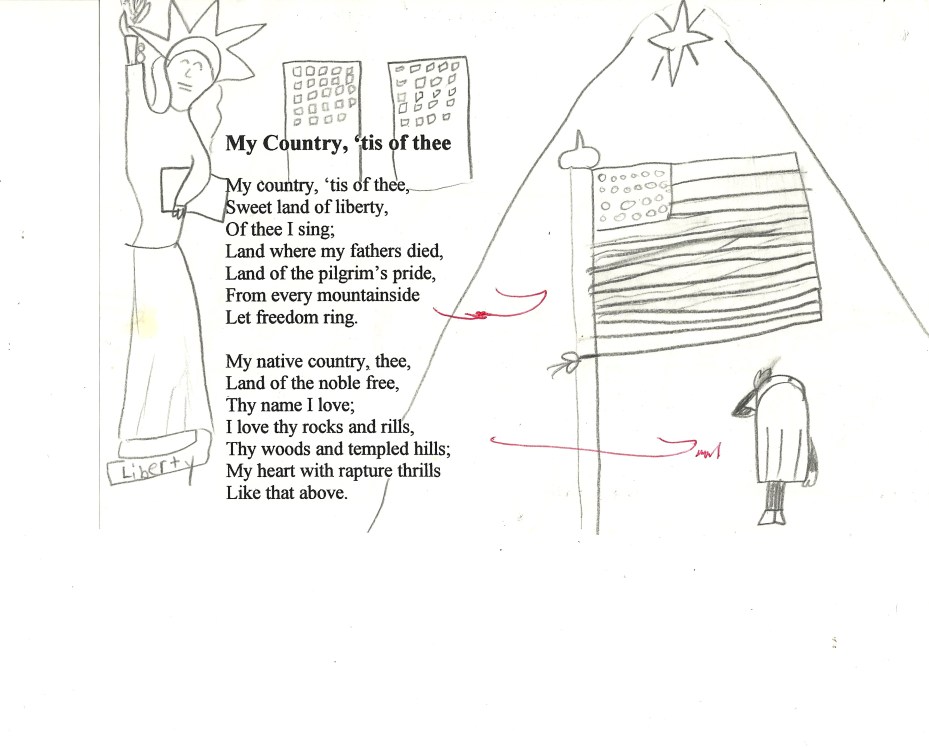 My Country, ‘tis of thee
My country, ‘tis of thee,
Sweet land of liberty,
Of thee I sing;
Land where my fathers died,
Land of the pilgrim’s pride,
From every mountainside
Let freedom ring.
My native country, thee,
Land of the noble free,
Thy name I love;
I love thy rocks and rills,
Thy woods and templed hills;
My heart with rapture thrills
Like that above.
Liberty